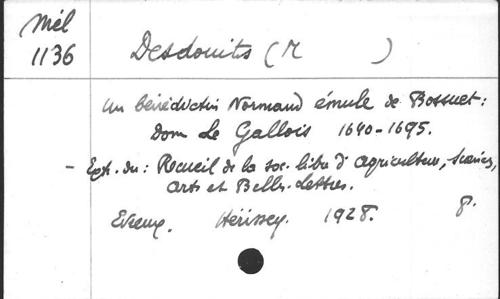 Mél
1136
Desdouits (M )
Un bénédictin Normand émule de Bossuet :
Dom Le Gallois 1640-1695.
- Ext. du : Recueil de la soc. libre d'agriculture, sciences,
arts et Belles-Lettres.
Evreux. Hérissey. 1928. 8.